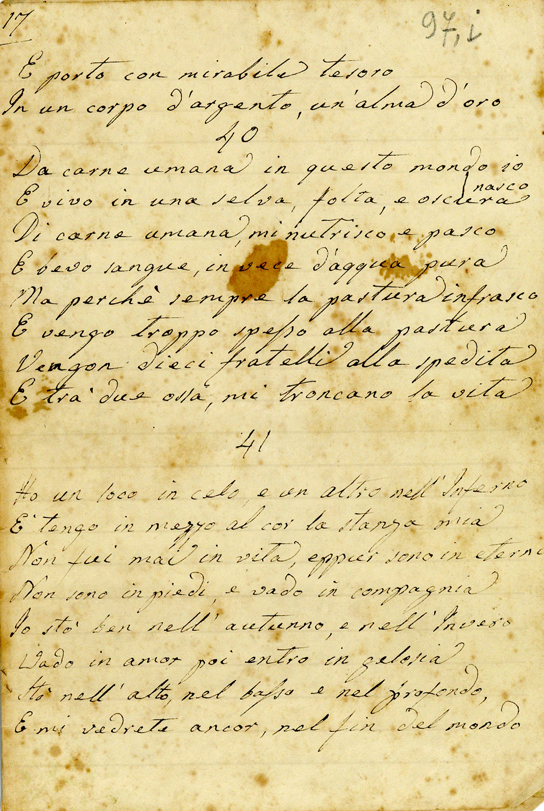 17
97,i
E porto con mirabile tesoro
In un corpo d'argento, un'alma d'oro
40
Da carne umana in questo mondo io nasco
E vivo in una selva, folta, e oscura
Di carne umana, mi nutrisco e pasco
E bevo sangue, in vece d'aqqua pura
Ma perchè sempre la pastura infrasco
E vengo troppo spesso alla pastura
Vengon dieci fratelli alla spedita
E tra due ossa, mi troncano la vita
41
Ho un loco in celo, e un altro nell'Inferno
E tengo in mezzo al cor la stanza mia
Non fui mai in vita, eppur sono in eterno
Non sono in piedi, e vado in compagnia
Io sto ben nell' autunno, e nell'Invero
Vado in amor poi entro in gelosia
Sto nell' alto, nel basso e nel profondo,
E mi vedrete ancor, nel fin del mondo